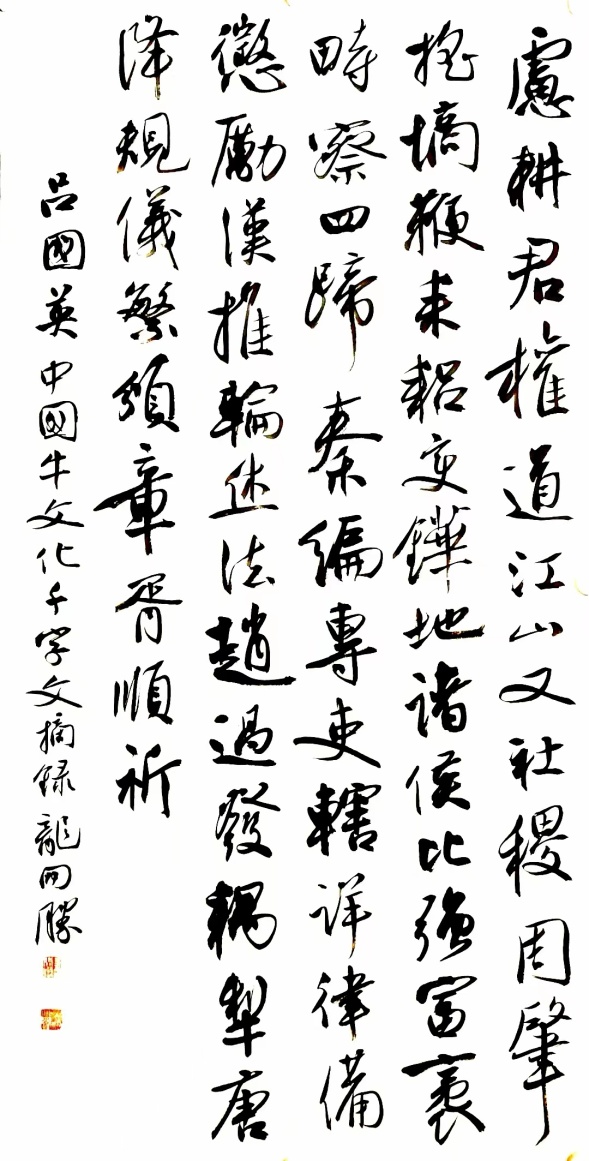 慮耕君權道江山又社稷周肇
鞭耒耜变鏵地諸侯比強富
畤察四蹄秦編專吏轄詳律備
懲勵漢推輪迭法趙過發耦犁唐
降規儀繁頒章胥順祈
吕國英中國牛文化千字文摘録龍開勝